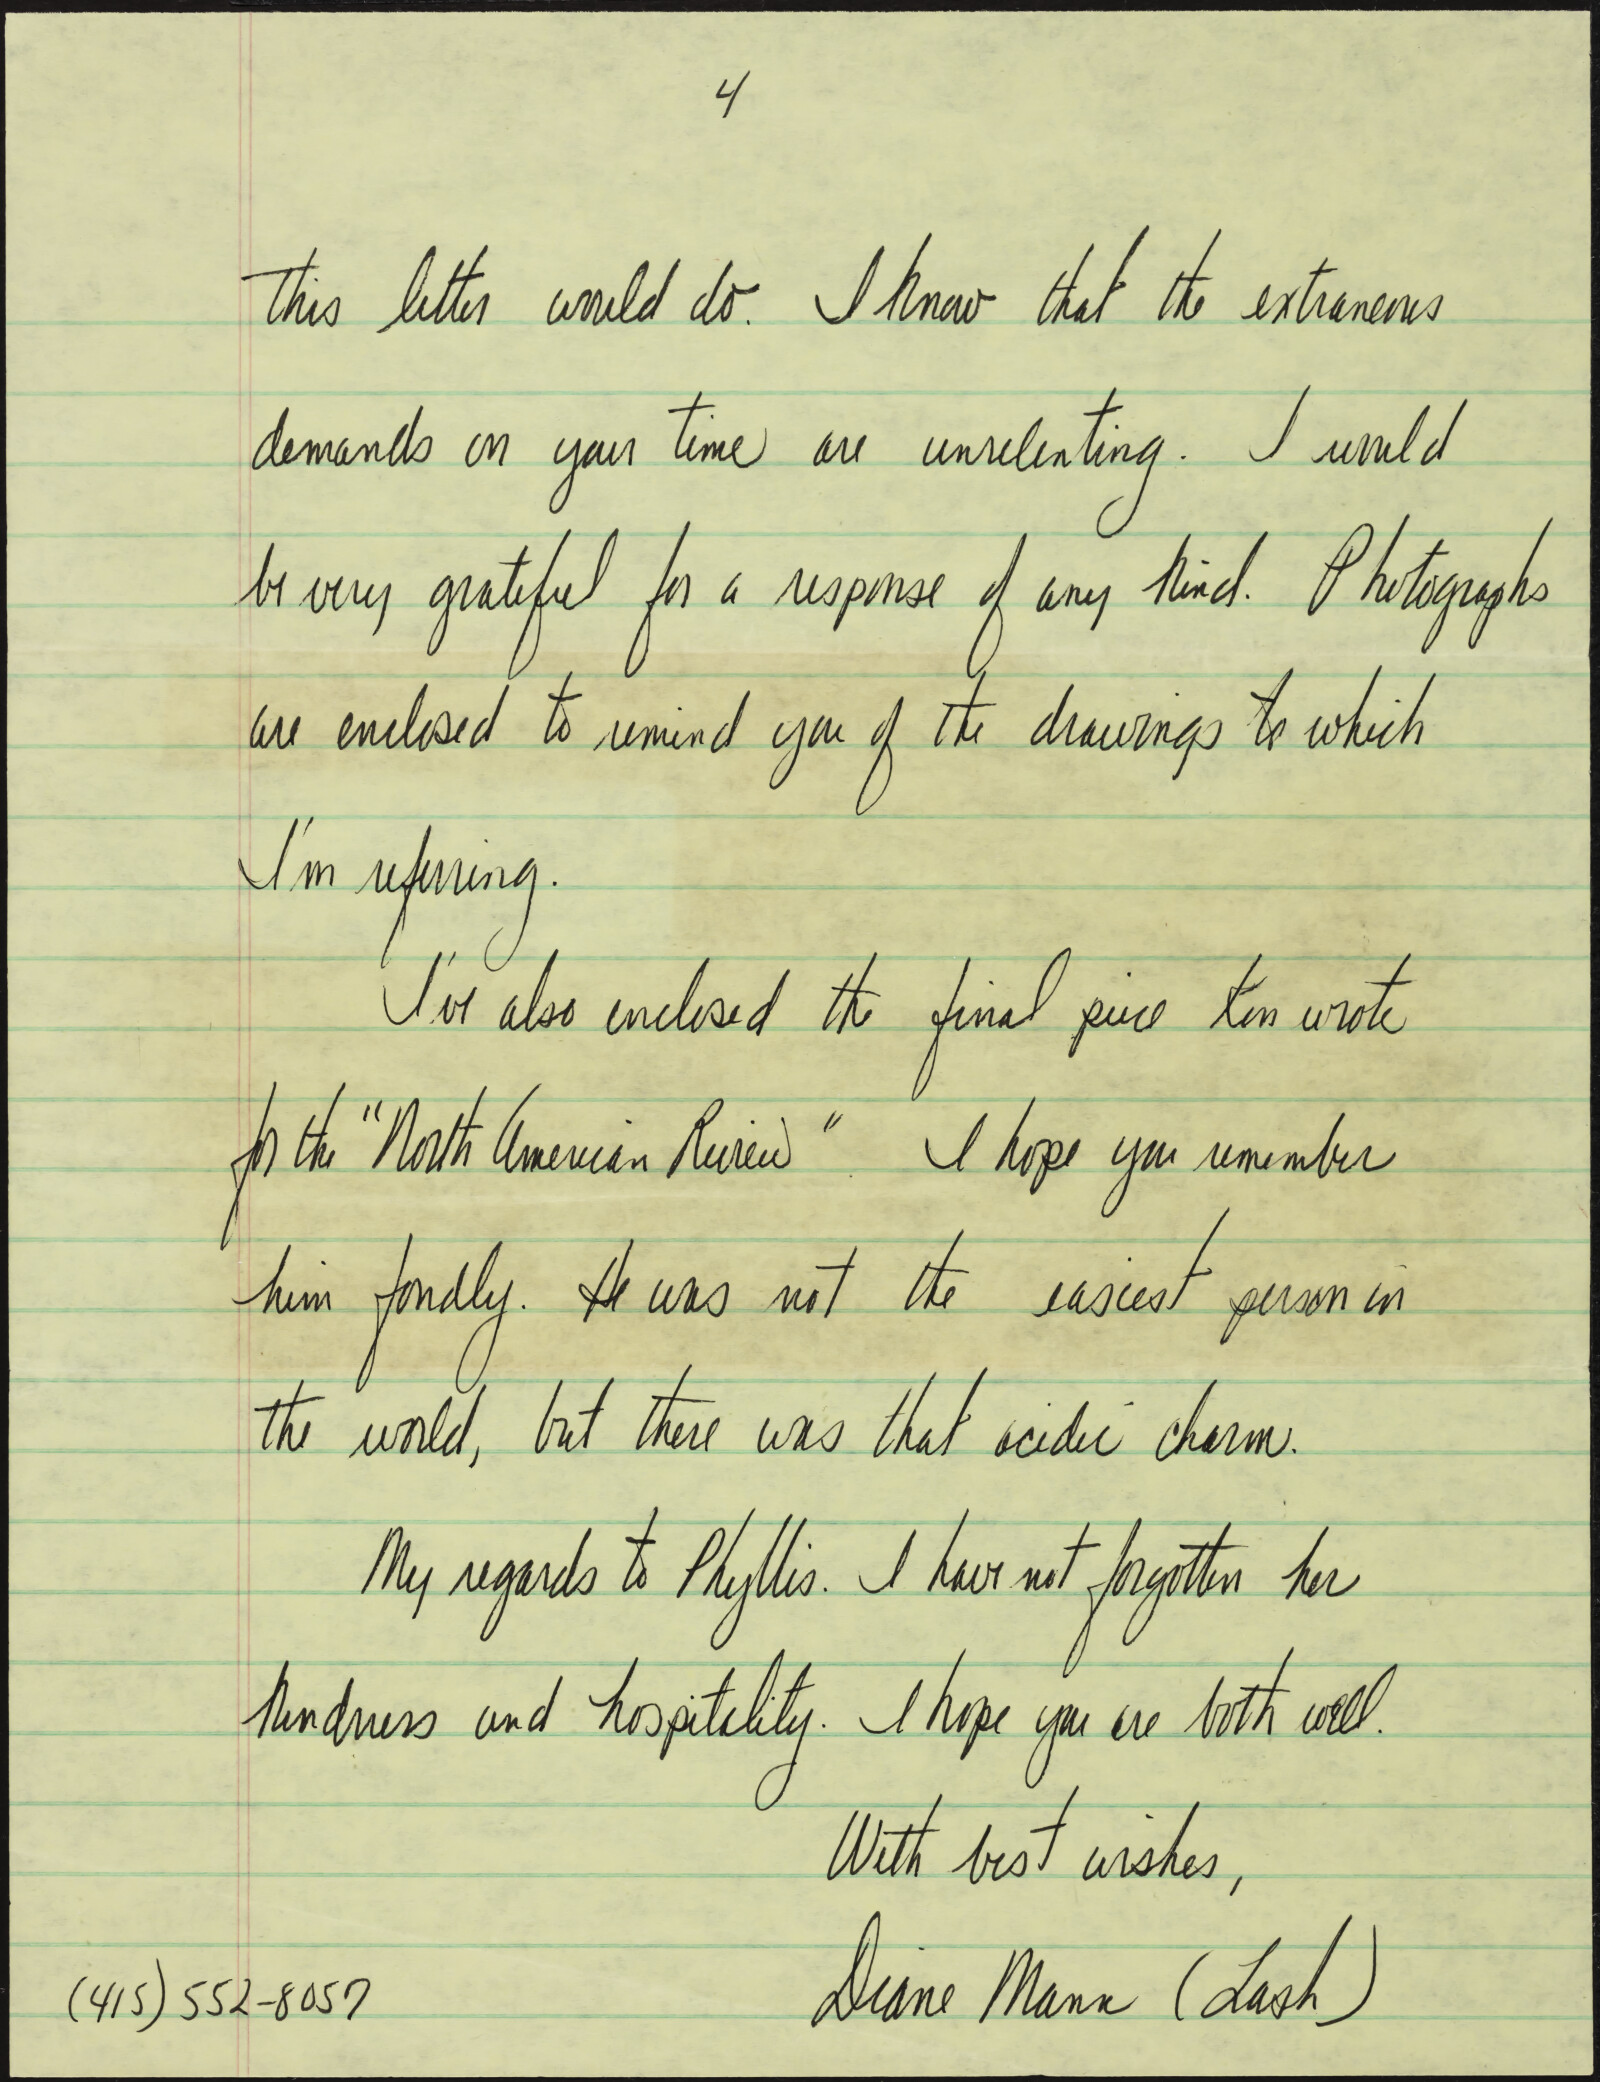 4
This letter would do. I know that the extraneous
demands on your time are unrelenting. I would
be very grateful for a response of any kind. Photographs
are enclosed to remind you of the drawings to which
I'm referring.
I've also enclosed the final piece Ken wrote
for the "North American Review". I hope you remember
him fondly. He was not the easiest person in
the world, but there was that acidic charm.
My regards to Phyllis. I have not forgotten her
kindness and hospitality. I hope you are both well.
With best wishes,
Diane Mann (Lash)
(415) 552-8057